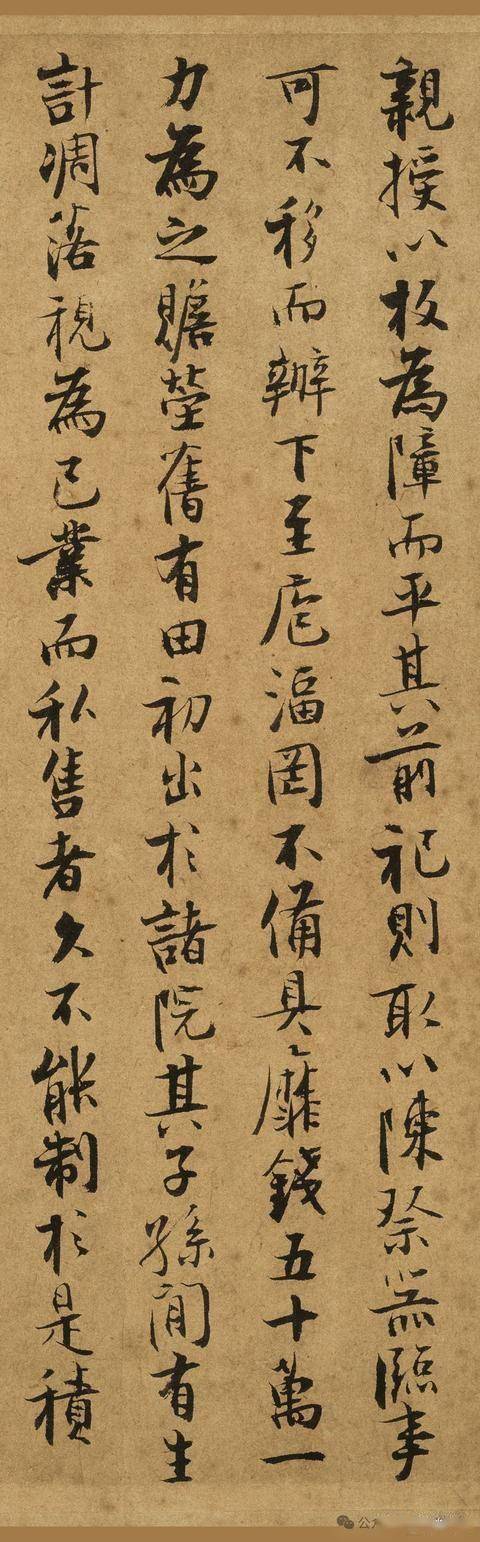 親授以板為障而平其前祀則取以陳祭器臨事
可不移而辦下至庖湢罔不備具靡錢五十萬一
力為之贍塋舊有田初出於諸院其子孫間有生
計凋落視為己業而私售者久不能制於是積